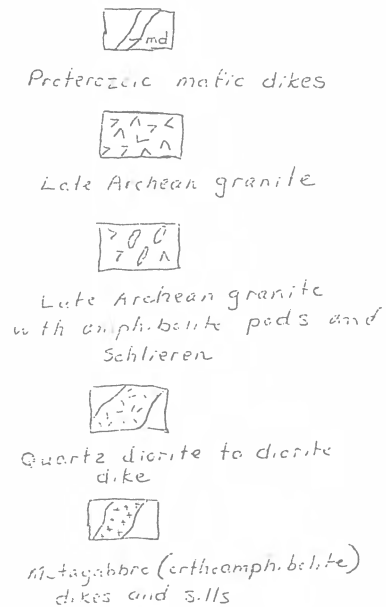 md
Proterozoic mafic dikes
Late Archean granite
Late Archean granite
with amphibolite pods and
Schlieren
Quartz diorite to diorite
dike
Metagabbro (orthoamphibolite)
dikes and sills